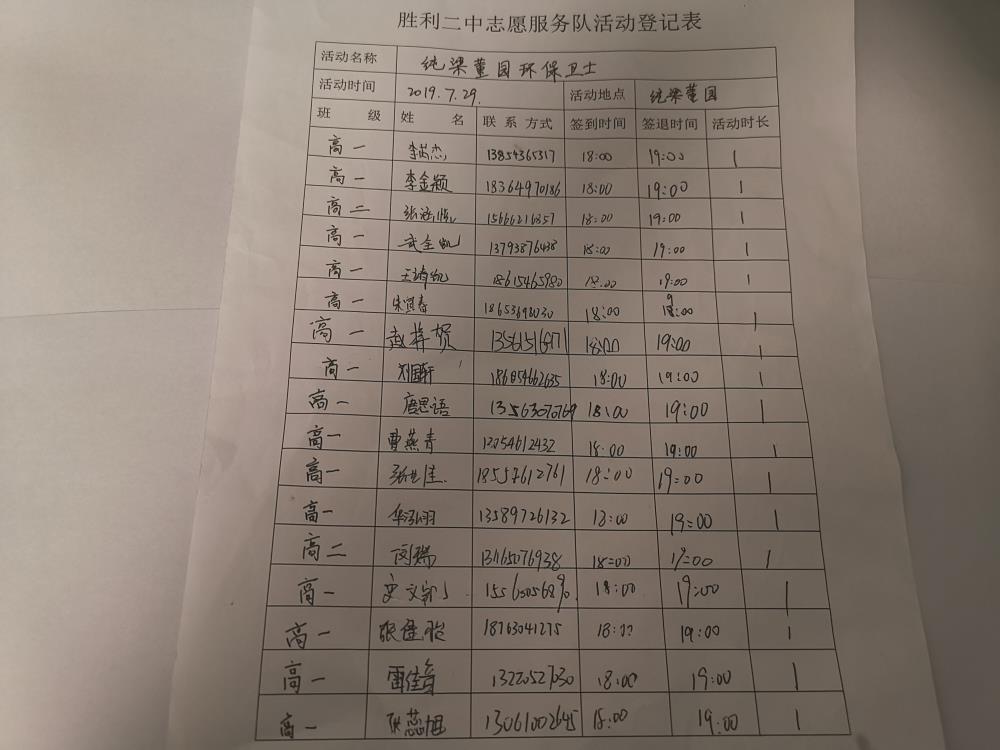 胜利二中志愿服务队活动登记表
活动名称 纯梁董园环保卫士
活动时间 2019.7.29. 活动地点 纯梁董园
班 级 姓 名 联 系 方式 签到时间 签退时间 活动时长
高一 13854365317 18:00 19:00 1
高一 李金颖 18364970186 18:00 19:00 1
高二 15666216357 18:00 19:00 1
高一 武金凯 13793876438 18:00 19:00 1
高一 18615465980 18:00 19:00 1
高一 18653698030 18:00 1
高一 赵梓贺 18:00 19:00 1
高一 刘国轩 18:00 19:00 1
高一 唐思语 13563070769 18:00 19:00 1
高一 曹燕青 18:00 19:00 1
高一 张世佳 18:00 19:00 1
高一 华泓羽 13589726132 18:00 19:00 1
高二 闵瑞 18:00 19:00 1
高一 18:00 19:00 1
高一 张佳聪 18763041275 19:00 1
高一 雷佳音 18:00 19:00 1
高一 耿蕊旭 13061002645 18:00 19:00 1